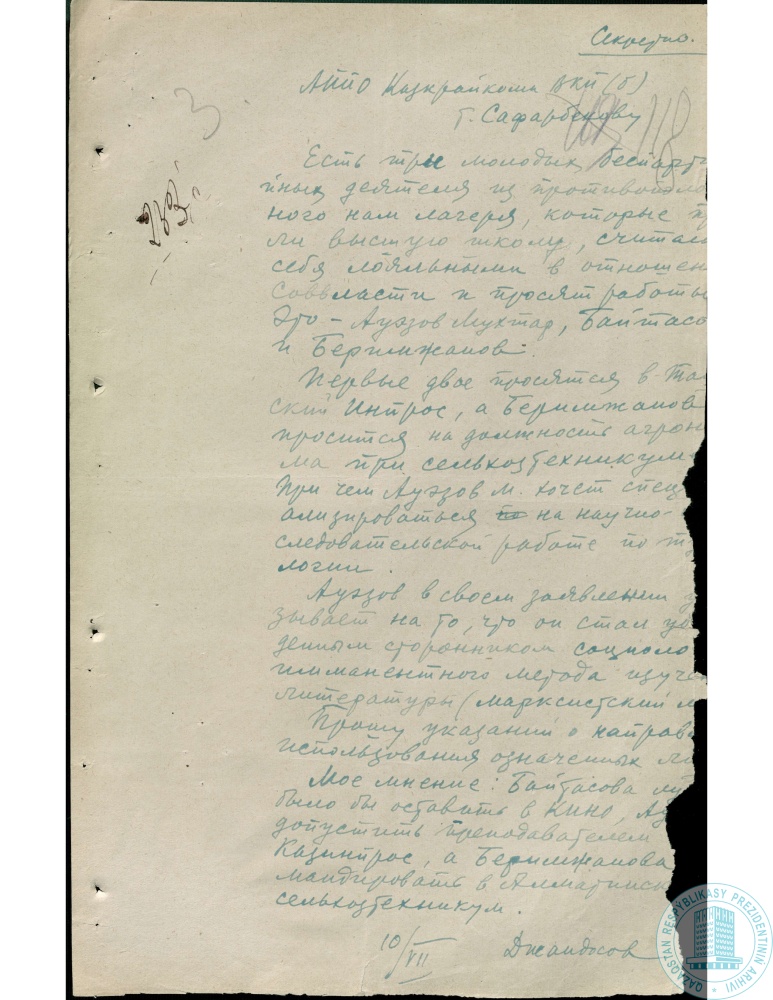 Секретно.
АППО Казкрайкома ВКП(б)
т. Сафарбекову
3
118
233
Есть три молодых беспарти
йных деятеля из противополо
ного нам лагеря, которые пр
ли высшую школу, считаю
себя лояльными в отношен
Соввласти и просят работы
Это – Ауэзов Мухтар, Байтасо
и Беримжанов.
Первые двое просятся в Та
ский Инпрос, а Беримжанов
просится на должность агрон
ма при сельхозтехникум
При чем Ауэзов М. хочет спец
ализироваться на научно-
следовательской работе по
логии.
Ауэзов в своем заявлении у
зывает на то, что он стал убе
денным сторонником социоло
имманентного метода изучен
литературы (марксистский м
Прошу указаний о направл
использования означенных ли
Мое мнение: Байтасова
было бы оставить в КИНО, Ау
допустить преподавателем
Казинпрос, а Беримжанова
мандировать в Алматинск
сельхозтехникум.
10/VII Джандосов
QAZAQSTAN RESPÝBLIKASY PREZIDENTINIŃ ARHIVI